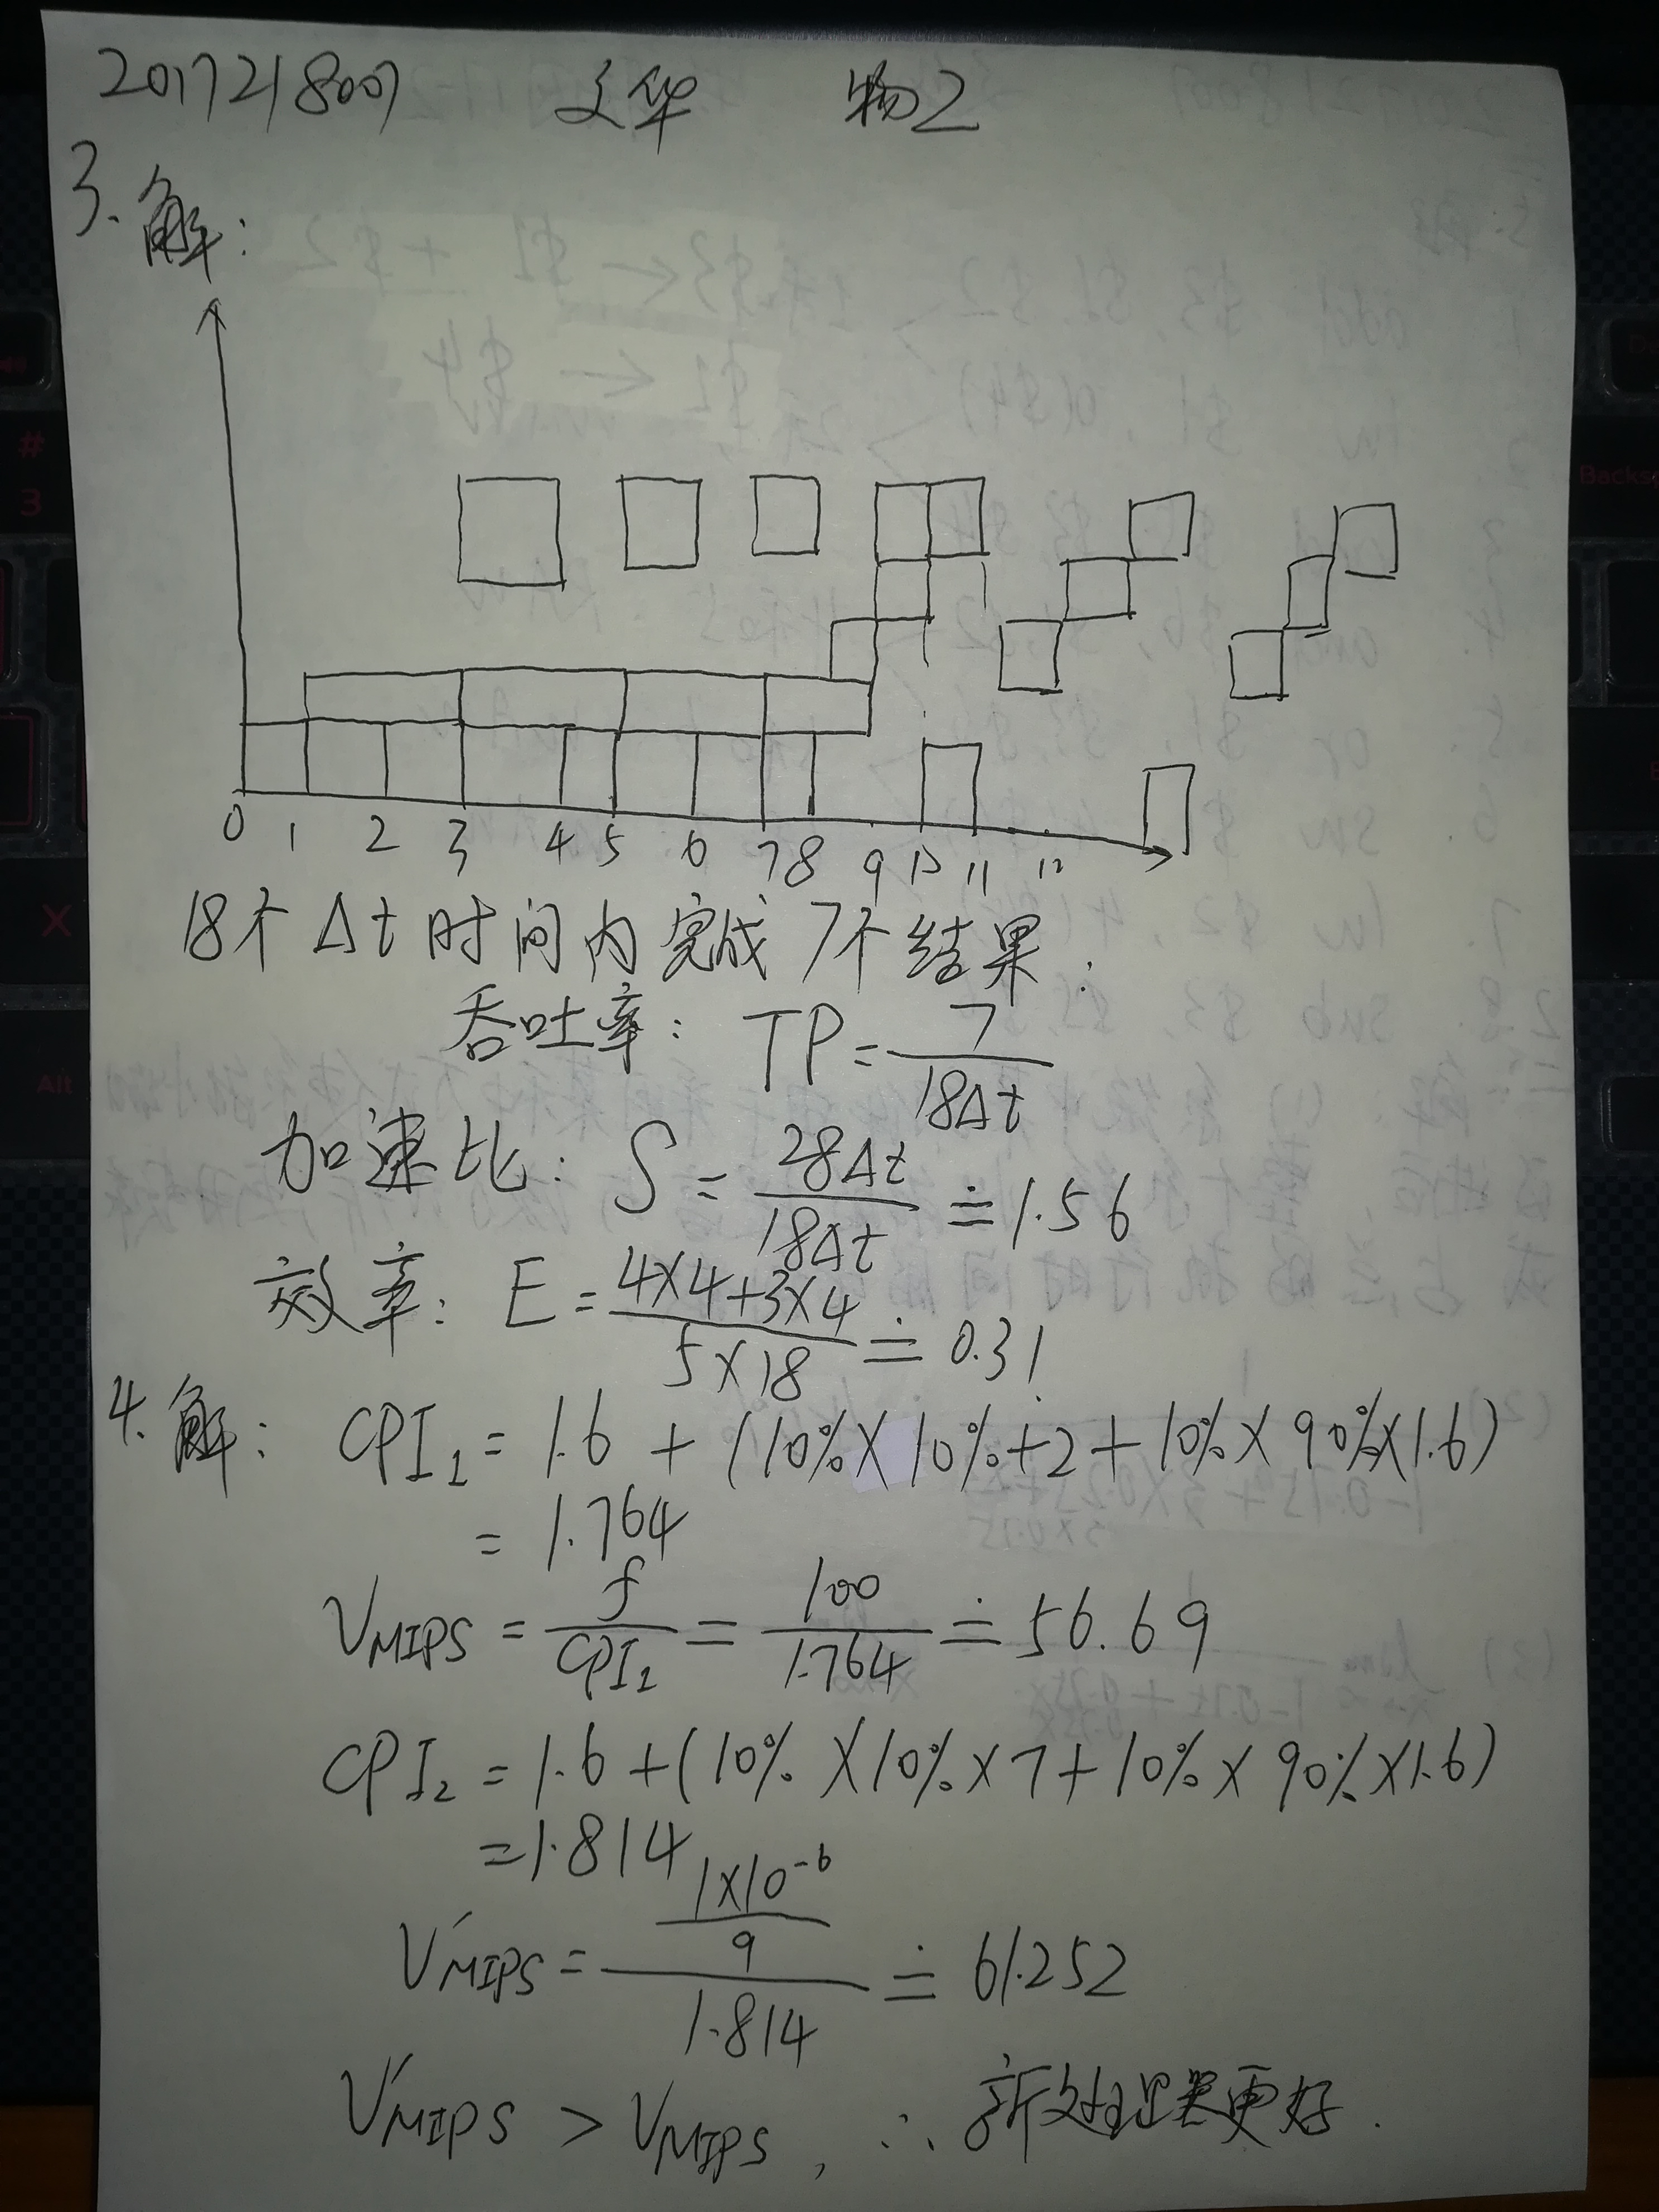 2017218007 文华 物2
3.解:
0 1 2 3 4 5 6 7 8 9 10 11 12
18个Δt时间内完成7个结果.
吞吐率: TP=7/18Δt
加速比: S=28Δt/18Δt≐1.56
效率: E=4×4+3×4/5×18≐0.31
4.解: CPI₁=1.6+(10%×10%+2+10%×90%×1.6)
=1.764
VMIPS=f/CPI₁=100/1.764≐56.69
CPI₂=1.6+(10%×10%×7+10%×90%×1.6)
=1.814
V'MIPS=1×10⁻⁶/9/1.814≐61.252
V'MIPS>VMIPS,∴新处理器更好.